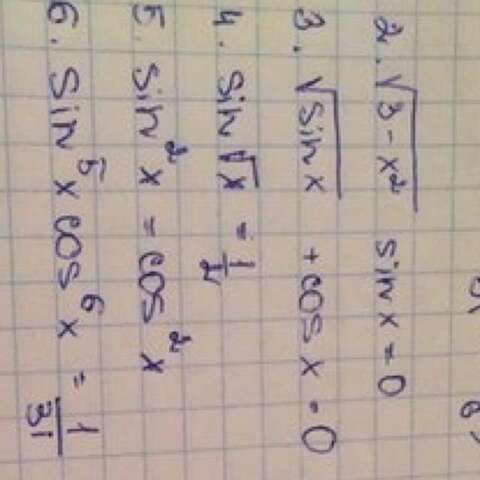 2. √(3 - x²) sin x = 0
3. √(sin x) + cos x = 0
4. sin √x = 1/2
5. sin² x = cos² x
6. sin⁵ x cos⁶ x = 1/31